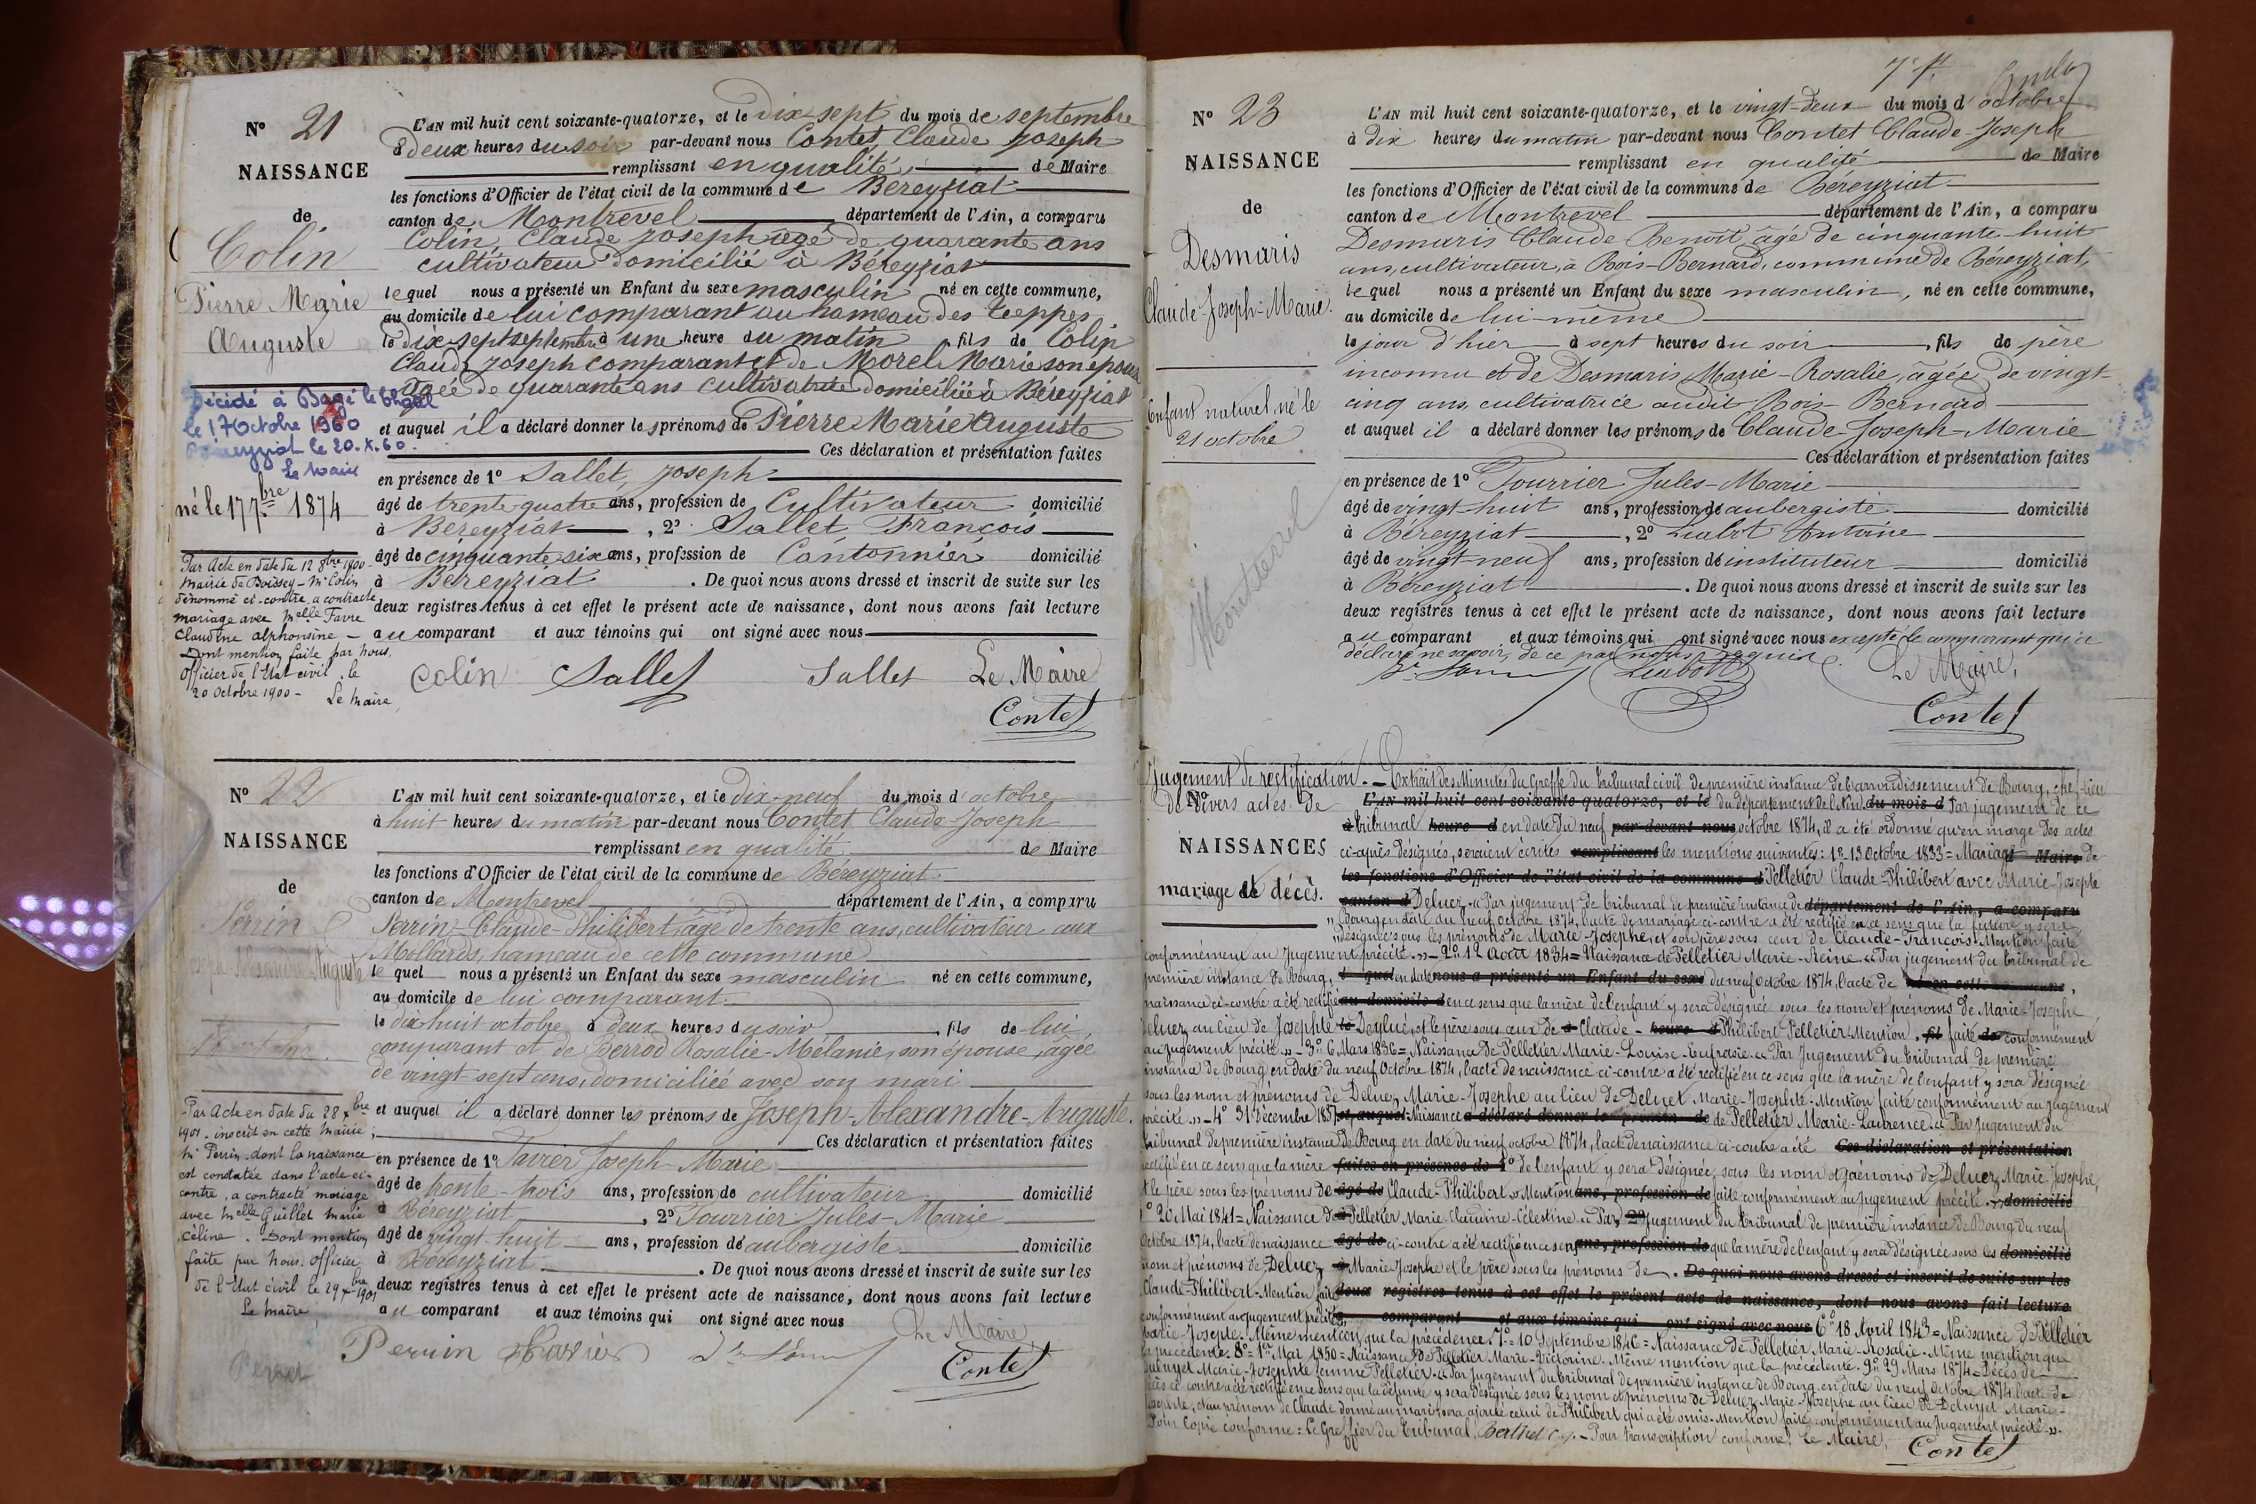 N° 21
NAISSANCE
de
Colin
Pierre Marie
Auguste
Décédé à Bagé le Châtel
le 17 Octobre 1960
Béreyziat le 20.X.60.
Le Maire
né le 17 7bre 1874
Par Acte en date du 12 8bre 1900
Mairie de Boissey - Mr Colin
dénommé ci-contre, a contracté
mariage avec Melle Favre
Claudine alphonsine -
Dont mention faite par nous,
Officier de l'Etat civil, le
20 Octobre 1900 -
Le Maire,
L'AN mil huit cent soixante-quatorze, et le dix-sept du mois de septembre
à deux heures du soir par-devant nous Contet Claude Joseph
remplissant en qualité de Maire
les fonctions d'Officier de l'état civil de la commune de Béreyziat
canton de Montrevel département de l'Ain, a comparu
Colin, Claude Joseph âgé de quarante ans
cultivateur domicilié à Béreyziat
lequel nous a présenté un Enfant du sexe masculin né en cette commune,
au domicile de lui comparant au hameau des Teppes
le dix-sept septembre à une heure du matin, fils de Colin
Claude Joseph comparant et de Morel Marie son épouse
âgée de quarante ans cultivatrice domiciliée à Béreyziat
et auquel il a déclaré donner les prénoms de Pierre Marie Auguste
Ces déclaration et présentation faites
en présence de 1° Sallet, Joseph
âgé de trente quatre ans, profession de Cultivateur domicilié
à Béreyziat, 2° Sallet François
âgé de cinquante six ans, profession de Cantonnier domicilié
à Béreyziat. De quoi nous avons dressé et inscrit de suite sur les
deux registres tenus à cet effet le présent acte de naissance, dont nous avons fait lecture
au comparant et aux témoins qui ont signé avec nous
Colin Sallet Sallet Le Maire
Contet
N° 22
NAISSANCE
de
Perrin
Joseph Alexandre Auguste
Par Acte en date du 28 xbre
1901, inscrit en cette Mairie,
Mr Perrin dont la naissance
est constatée dans l'acte ci-
contre, a contracté mariage
avec Melle Guillet Marie
Céline. Dont mention
faite par Nous, Officier
de l'Etat civil le 29 xbre 1901
Le Maire
L'AN mil huit cent soixante-quatorze, et le dix-neuf du mois d'octobre
à huit heures du matin par-devant nous Contet Claude Joseph
remplissant en qualité de Maire
les fonctions d'Officier de l'état civil de la commune de Béreyziat
canton de Montrevel département de l'Ain, a comparu
Perrin Claude-Philibert, âgé de trente ans, cultivateur aux
Mollards, hameau de cette commune
lequel nous a présenté un Enfant du sexe masculin né en cette commune,
au domicile de lui comparant
le dix huit octobre à deux heures du soir, fils de lui
comparant et de Berrod Rosalie-Mélanie, son épouse, âgée
de vingt-sept ans, domiciliée avec son mari
et auquel il a déclaré donner les prénoms de Joseph-Alexandre-Auguste.
Ces déclaration et présentation faites
en présence de 1° Favier Joseph-Marie
âgé de trente-trois ans, profession de cultivateur domicilié
à Béreyziat, 2° Fourrier Jules-Marie
âgé de vingt-huit ans, profession de aubergiste domicilié
à Béreyziat. De quoi nous avons dressé et inscrit de suite sur les
deux registres tenus à cet effet le présent acte de naissance, dont nous avons fait lecture
au comparant et aux témoins qui ont signé avec nous
Le Maire
Perrin Favier
Contet
7e ft.
N° 23
NAISSANCE
de
Desmaris
Claude-Joseph-Marie.
Enfant naturel, né le
21 octobre
Montterrel
L'AN mil huit cent soixante-quatorze, et le vingt-deux du mois d'octobre
à dix heures du matin par-devant nous Contet Claude-Joseph
remplissant en qualité de Maire
les fonctions d'Officier de l'état civil de la commune de Béreyziat
canton de Montrevel département de l'Ain, a comparu
Desmaris Claude Benoît, âgé de cinquante-huit
ans, cultivateur, à Bois-Bernard, commune de Béreyziat,
lequel nous a présenté un Enfant du sexe masculin, né en cette commune,
au domicile de lui-même
le jour d'hier à sept heures du soir, fils de père
inconnu et de Desmaris Marie-Rosalie, âgée de vingt-
cinq ans, cultivatrice audit Bois Bernard
et auquel il a déclaré donner les prénoms de Claude-Joseph-Marie
Ces déclaration et présentation faites
en présence de 1° Fourrier Jules-Marie
âgé de vingt-huit ans, profession de aubergiste domicilié
à Béreyziat, 2° Liabot Antoine
âgé de vingt-neuf ans, profession de instituteur domicilié
à Béreyziat. De quoi nous avons dressé et inscrit de suite sur les
deux registres tenus à cet effet le présent acte de naissance, dont nous avons fait lecture
au comparant et aux témoins qui ont signé avec nous excepté le comparant qui a
déclaré ne savoir, de ce par nous requis.
Liabot Le Maire,
Contet
Jugement de rectification.
de divers actes de
NAISSANCES
mariage et décès.
Extrait des Minutes du Greffe du tribunal civil de première instance de l'arrondissement de Bourg, chef-lieu
du département de l'Ain. Par jugement de ce
tribunal en date du neuf octobre 1874, il a été ordonné qu'en marge des actes
ci-après désignés, seraient écrites les mentions suivantes: 1° 13 Octobre 1833 = Mariage de
Pelletier Claude-Philibert avec Marie-Josephe
Deluez. « Par jugement du tribunal de première instance de
Bourg en date du neuf octobre 1874, l'acte de mariage ci-contre a été rectifié en ce sens que la future y sera
désignée sous les prénoms de Marie-Josephe, et son père sous ceux de Claude-François. Mention faite
conformément au jugement précité. » - 2° 12 Août 1834 = Naissance de Pelletier Marie-Reine. « Par jugement du tribunal de
première instance de Bourg, en date du neuf octobre 1874, l'acte de
naissance ci-contre a été rectifié en ce sens que la mère de l'enfant y sera désignée sous les nom et prénoms de Marie-Josephe
Deluez au lieu de Josephte Deylué, et le père sous ceux de Claude-Philibert Pelletier. Mention faite conformément
au jugement précité. » - 3° 6 Mars 1836 = Naissance de Pelletier Marie-Louise-Eufrasie. « Par Jugement du tribunal de première
instance de Bourg en date du neuf Octobre 1874, l'acte de naissance ci-contre a été rectifié en ce sens que la mère de l'enfant y sera désignée
sous les nom et prénoms de Deluez Marie-Josephe au lieu de Deluet Marie-Josephte. Mention faite conformément au jugement
précité. » - 4° 31 Décembre Naissance de Pelletier Marie-Laurence. « Par Jugement du
tribunal de première instance de Bourg en date du neuf octobre 1874, l'acte de naissance ci-contre a été
rectifié en ce sens que la mère de l'enfant y sera désignée, sous les nom et prénoms de Deluez Marie-Josephe,
et le père sous les prénoms de Claude-Philibert. » Mention faite conformément au jugement précité. »
5° 20 Mai 1841 = Naissance de Pelletier Marie Claudine-Célestine. « Par Jugement du tribunal de première instance de Bourg du neuf
Octobre 1874, l'acte de naissance ci-contre a été rectifié en ce sens que la mère de l'enfant y sera désignée sous les
nom et prénoms de Deluez Marie-Josephe et le père sous les prénoms de
Claude-Philibert. Mention faite
conformément au jugement précité. 6° 18 Avril 1843 = Naissance de Pelletier
Marie-Josepte. Même mention que la précédence. 7° 10 Septembre 1846 = Naissance de Pelletier Marie-Rosalie. Même mention que
la précédente. 8° = 1er Mai 1850 = Naissance de Pelletier Marie-Victorine. Même mention que la précédente. 9° 29 Mars 1874 = Décès de
Marie-Josephte femme Pelletier. « Par jugement du tribunal de première instance de Bourg en date du neuf octobre 1874, l'acte de
décès ci-contre a été rectifié en ce sens que la défunte y sera désignée sous les nom et prénoms de Deluez Marie-Josephe au lieu de Deluyet Marie-
Josephte, et au prénom de Claude donné au mari sera ajouté celui de Philibert qui a été omis. Mention faite conformément au jugement précité. »
Pour Copie conforme: Le Greffier du tribunal, Pour transcription conforme: Le Maire,
Contet